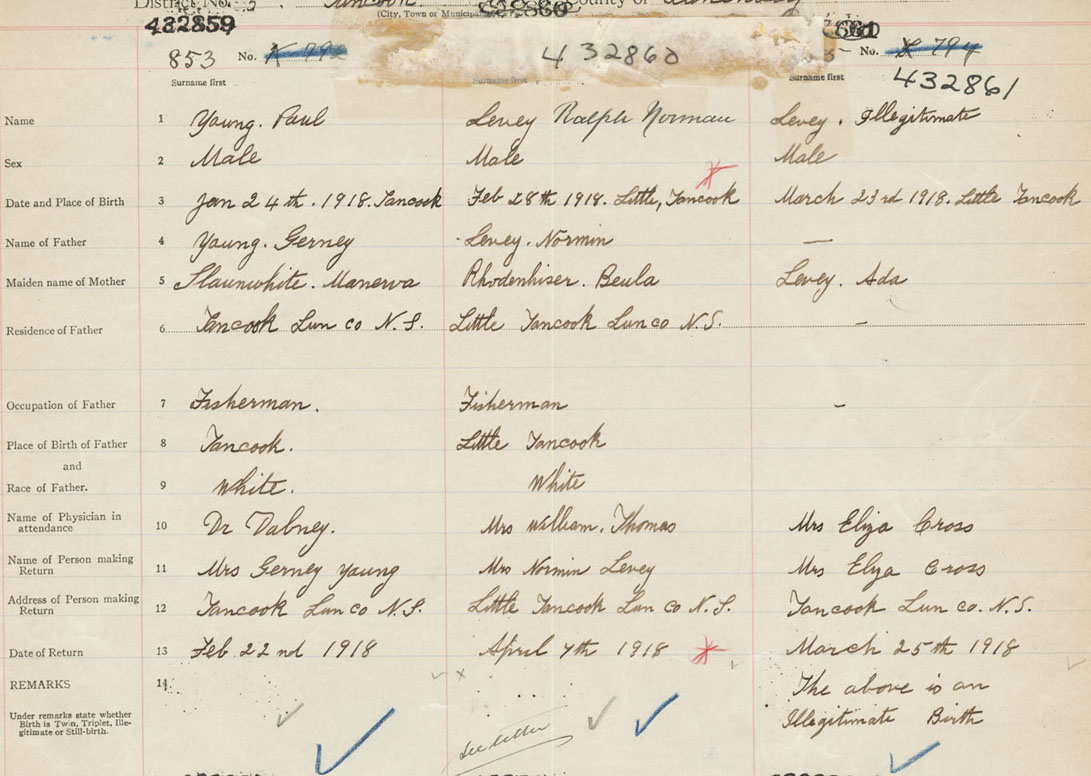 District No. Tancook County of Lunenburg
(City, Town or Municipality)
432859 661
853 No. 432860 No. X 794
432861
Surname first Surname first Surname first
Name 1 Young. Paul Levey Ralph Norman Levey. Illegitimate
Sex 2 Male Male Male
Date and Place of Birth 3 Jan 24th. 1918. Tancook Feb 28th 1918. Little, Tancook March 23rd 1918. Little Tancook
Name of Father 4 Young. Gerney Levey. Normin —
Maiden name of Mother 5 Slaunwhite. Manerva Rhodenhiser. Beula Levey. Ada
Residence of Father 6 Tancook Lun co N.S. Little Tancook Lun co N.S. –
Occupation of Father 7 Fisherman. Fisherman –
Place of Birth of Father 8 Tancook. Little Tancook
and
Race of Father. 9 White. White
Name of Physician in attendance 10 Dr Dabney. Mrs William. Thomas Mrs Eliza Cross
Name of Person making Return 11 Mrs Gerney Young Mrs Normin Levey Mrs Eliza Cross
Address of Person making Return 12 Tancook Lun co N.S. Little Tancook Lun co N.S. Tancook Lun co. N.S.
Date of Return 13 Feb 22nd 1918 April 7th 1918 March 25th 1918
REMARKS 14 The above is an
Under remarks state whether Birth is Twin, Triplet, Illegitimate or Still-birth. see letter Illegitimate Birth